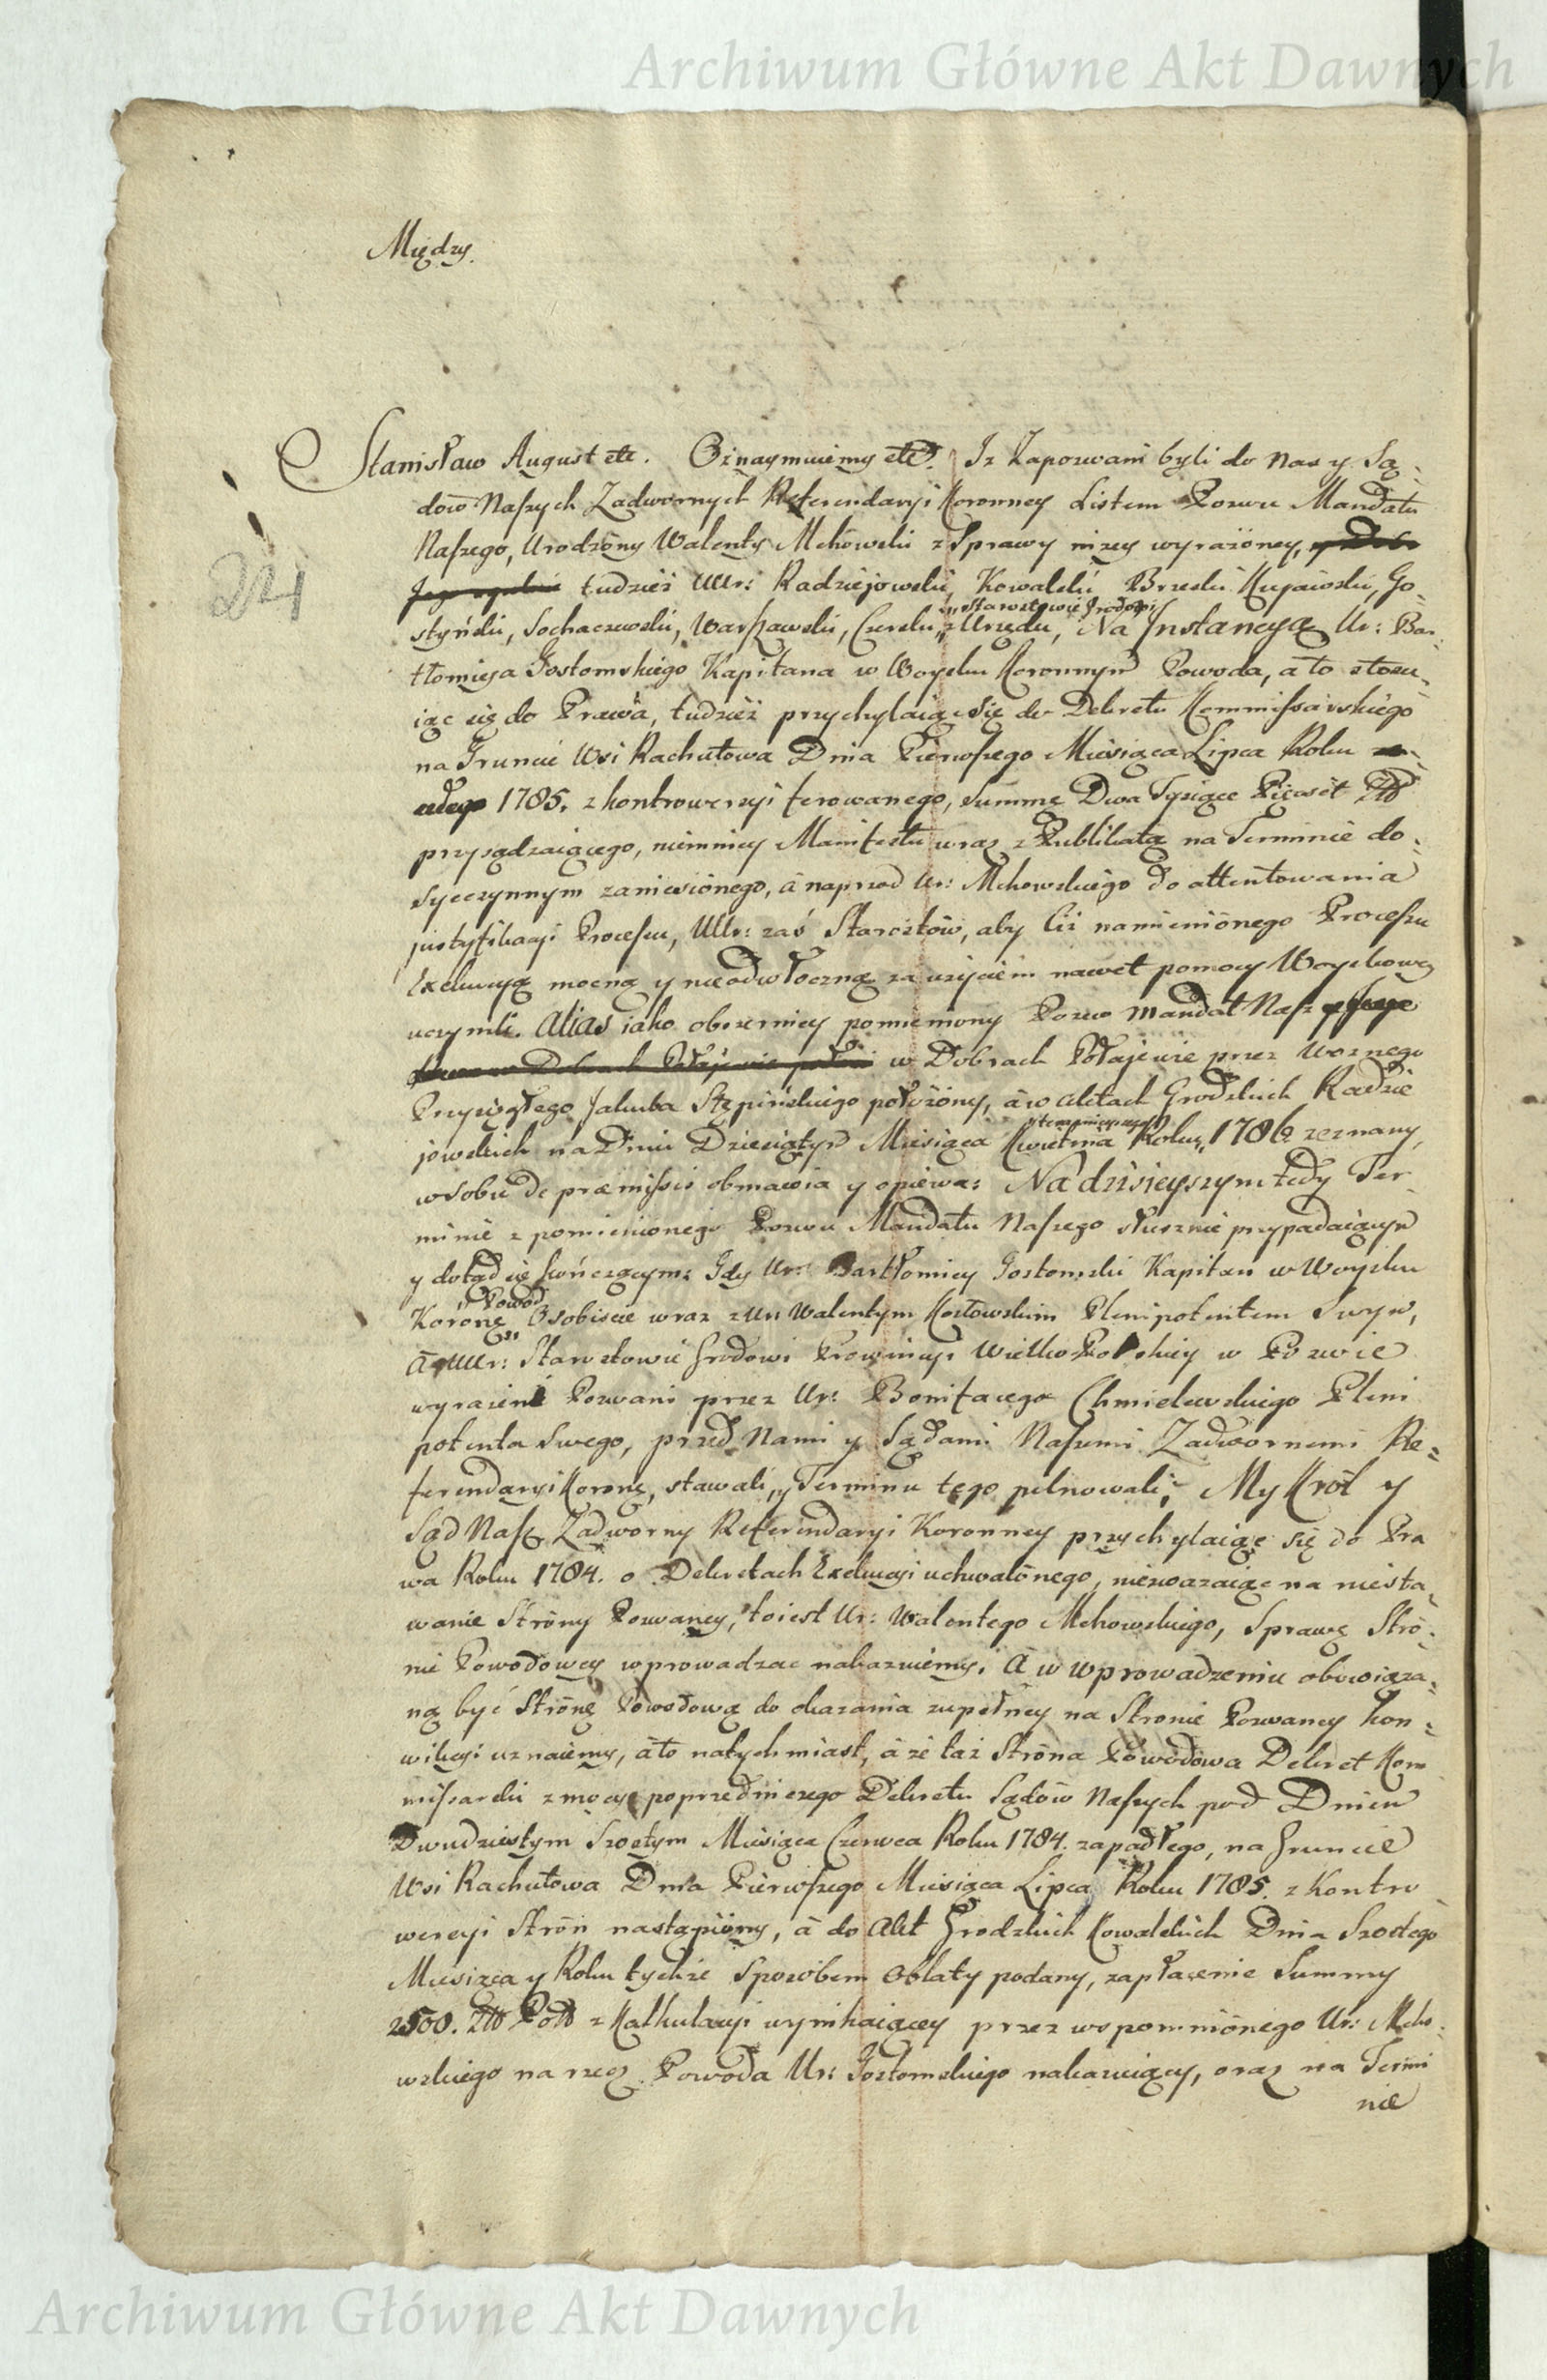 Archiwum Główne Akt Dawnych
Między.
221
Stanisław August etc. Oznaymuiemy etc. Iż Zapozwani byli do Nas y Są-
dow Naszych Zadwornych Referendaryi Koronney Listem Pozwu Mandatu
Naszego, Urodzony Walenty Mchowski z Sprawy niżey wyrażoney,
tudzież UUr: Radziejowski, Kowalski Brzeski Kujawski, Go-
starostowie Grodowi
styński, Sochaczewski, Warszawski, Czerski z Urzędu, Na Instancyą Ur: Bar-
tłomieja Gostomskiego Kapitana w Woysku Koronnym Powoda, a to stosu-
iąc się do Prawa, tudzież przychylaiąc się do Dekretu Kommissarskiego
na Gruncie Wsi Rachutowa Dnia Pierwszego Miesiąca Lipca Roku
1785. z kontrowersyi ferowanego, Summę Dwa Tysiące Pięcset Złł
przysądzaiącego, niemniey Manifestu wraz z Publikatą na Terminie do-
syczynnym zaniesionego, a naprzod Ur: Mchowskiego do attentowania
justyfikacyi Procesu, UUr: zaś Starostow, aby liż namienionego Procesu
Exekucyą mocną y nieodwłoczną za użyciem nawet pomocy Woyskowey
uczynili. Alias iako obszerniey pomieniony Pozew Mandat Nasz
w Dobrach Połajewie przez Woznego
Przysięgłego Jakuba Stępińskiego położony, a w Aktach Grodzkich Radzie
jowskich na Dniu Dziesiątym Miesiąca Kwietnia Roku 1786 zeznany,
w sobie de præmissis obmawia y opiewa: Na dzisieyszym tedy Ter-
minie z pomienionego Pozwu Mandatu Naszego słusznie przypadaiącym
y dotąd się kończącym: Gdy Ur: Bartłomiey Gostomski Kapitan w Woysku
Powod
Koronę Osobiscie wraz z Ur: Walentym Kozłowskim Plenipotentem Swym,
a UUr: Starostowie Grodowi Prowincyi Wielko-Polskiey w Pozwie
wyrażeni Pozwani przez Ur: Bonifacego Chmielewskiego Pleni
potenta Swego, przed Nami y Sądami Naszemi Zadwornemi Re-
ferendaryi Koronę, stawali, y Terminu tego pilnowali; My Krol y
Sąd Nasz Zadworny Referendaryi Koronney przychylaiąc się do Pra
wa Roku 1784. o Dekretach Exekucyi uchwalonego, niezwazaiąc na niesta-
wanie Strony Pozwaney, toiest Ur: Walentego Mchowskiego, Sprawę Stro-
nie Powodowey wprowadzac nakazuiemy. A w wprowadzeniu obowiąza-
ną być Stronę Powodową do okazania zupełney na Stronie Pozwaney kon-
wikcyi uznaiemy, a to natychmiast, a że taż Strona Powodowa Dekret Kom
missarski z mocy poprzedniczego Dekretu Sądow Naszych pod Dniem
Dwudziestym Szostym Miesiąca Czerwca Roku 1784. zapadłego, na Gruncie
Wsi Rachutowa Dnia Pierwszego Miesiąca Lipca Roku 1785. z Kontro
wersyi Stron nastąpiony, a do Akt Grodzkich Kowalskich Dnia Szostego
Miesiąca y Roku tychże Sposobem Oblaty podany, zapłacenie Summy
2500. Złł Poll z Kalkulacyi wynikaiącey przez wspomnionego Ur: Mcho-
wskiego na rzecz Powoda Ur: Gostomskiego nakazuiący, oraz na Termi
nie
Archiwum Główne Akt Dawnych